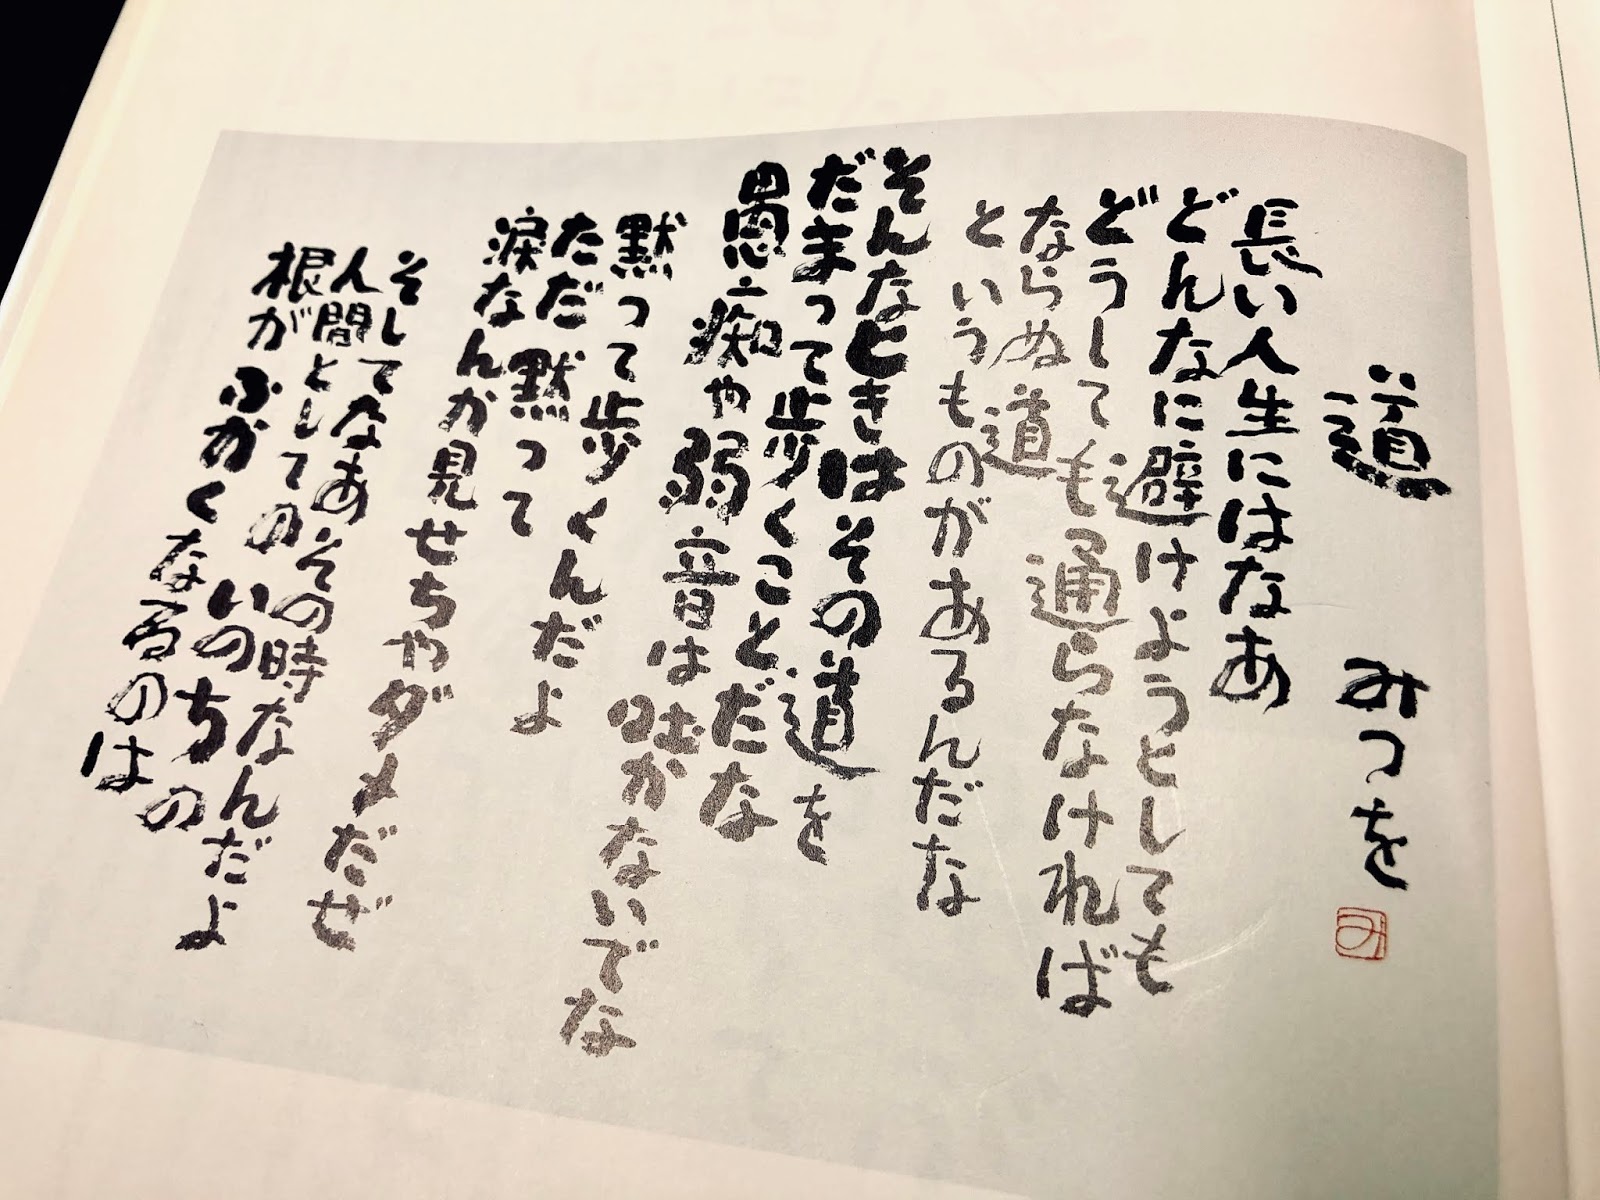 道 みつを
み
長い人生にはなあ
どんなに避けようとしても
どうしても通らなければ
ならぬ道
というものがあるんだな
そんなときはその道を
だまって歩くことだな
愚痴や弱音は吐かないでな
黙って歩くんだよ
ただ黙って
涙なんか見せちゃダメだぜ
そしてなあその時なんだよ
人間としてのいのちの
根がふかくなるのは